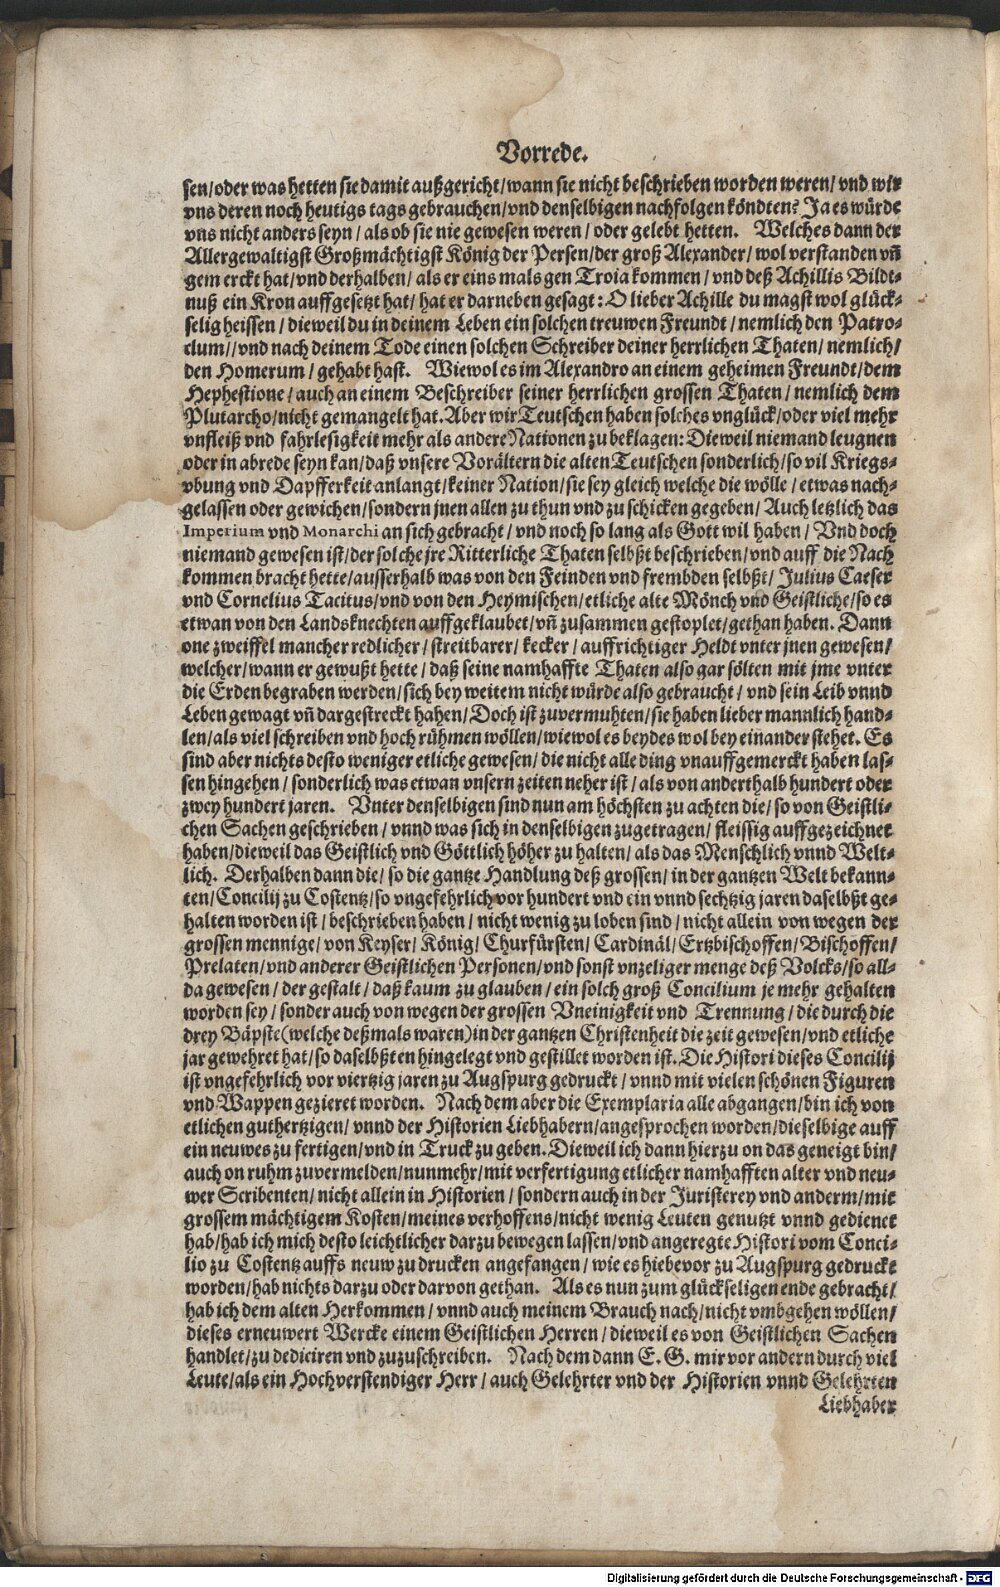 Vorrede.
sen/oder was hetten sie damit außgericht/wann sie nicht beschrieben worden weren/ vnd wir
vns deren noch heutigs tags gebrauchen/vnd denselbigen nachfolgen köndten? Ja es würde
vns nicht anders seyn/ als ob sie nie gewesen weren/ oder gelebt hetten. Welches dann der
Allergewaltigst Großmächtigst König der Persen/der groß Alexander/ wol verstanden vñ
gemerckt hat/vnd derhalben/ als er eins mals gen Troia kommen/ vnd deß Achillis Bildt-
nuß ein Kron auffgesetzt hat/ hat er darneben gesagt: O lieber Achille du magst wol glück-
selig heissen/ dieweil du in deinem Leben ein solchen treuwen Freundt/ nemlich den Patro-
clum//vnd nach deinem Tode einen solchen Schreiber deiner herrlichen Thaten/ nemlich/
den Homerum/ gehabt hast. Wiewol es im Alexandro an einem geheimen Freundt/dem
Hephestione/ auch an einem Beschreiber seiner herrlichen grossen Thaten/ nemlich dem
Plutarcho/nicht gemangelt hat. Aber wir Teutschen haben solches vnglück/oder viel mehr
vnfleiß vnd fahrlesigkeit mehr als andere Nationen zu beklagen: Dieweil niemand leugnen
oder in abrede seyn kan/daß vnsere Vorältern die alten Teutschen sonderlich/so vil Kriegs-
vbung vnd Dapfferkeit anlangt/keiner Nation/sie sey gleich welche die wölle/ etwas nach-
gelassen oder gewichen/sondern jnen allen zu thun vnd zu schicken gegeben/ Auch letzlich das
Imperium vnd Monarchi an sich gebracht/ vnd noch so lang als Gott wil haben/ Vnd doch
niemand gewesen ist/der solche jre Ritterliche Thaten selbßt beschrieben/vnd auff die Nach
kommen bracht hette/ausserhalb was von den Feinden vnd frembden selbßt/ Julius Caeser
vnd Cornelius Tacitus/vnd von den Heymischen/etliche alte Mönch vnd Geistliche/so es
etwan von den Landsknechten auffgeklaubet/vñ zusammen gestoplet/gethan haben. Dann
one zweiffel mancher redlicher/ streitbarer/ kecker/ auffrichtiger Heldt vnter jnen gewesen/
welcher/wann er gewußt hette/ daß seine namhaffte Thaten also gar sölten mit jme vnter
die Erden begraben werden/sich bey weitem nicht würde also gebraucht/ vnd sein Leib vnnd
Leben gewagt vñ dargestreckt hahen/Doch ist zuvermuhten/sie haben lieber mannlich hand-
len/als viel schreiben vnd hoch rühmen wöllen/wiewol es beydes wol bey einander stehet. Es
sind aber nichts desto weniger etliche gewesen/ die nicht alle ding vnauffgemerckt haben las-
sen hingehen/ sonderlich was etwan vnsern zeiten neher ist/ als von anderthalb hundert oder
zwey hundert jaren. Vnter denselbigen sind nun am höchsten zu achten die/ so von Geistli-
chen Sachen geschrieben/ vnnd was sich in denselbigen zugetragen/ fleissig auffgezeichnet
haben/dieweil das Geistlich vnd Göttlich höher zu halten/ als das Menschlich vnnd Welt-
lich. Derhalben dann die/ so die gantze Handlung deß grossen/ in der gantzen Welt bekann-
ten/Concilij zu Costentz/so vngefehrlich vor hundert vnd ein vnnd sechtzig jaren daselbßt ge-
halten worden ist/ beschrieben haben/ nicht wenig zu loben sind/ nicht allein von wegen der
grossen mennige/ von Keyser/ König/ Churfürsten/ Cardinäl/ Ertzbischoffen/ Bischoffen/
Prelaten/vnd anderer Geistlichen Personen/vnd sonst vnzeliger menge deß Volcks/so all-
da gewesen/ der gestalt/ daß kaum zu glauben/ ein solch groß Concilium je mehr gehalten
worden sey/ sonder auch von wegen der grossen Vneinigkeit vnd Trennung/ die durch die
drey Bäpste(welche deßmals waren)in der gantzen Christenheit die zeit gewesen/vnd etliche
jar gewehret hat/so daselbßten hingelegt vnd gestillet worden ist. Die Histori dieses Concilij
ist vngefehrlich vor viertzig jaren zu Augspurg gedruckt/ vnnd mit vielen schönen Figuren
vnd Wappen gezieret worden. Nach dem aber die Exemplaria alle abgangen/bin ich von
etlichen guthertzigen/ vnnd der Historien Liebhabern/angesprochen worden/dieselbige auff
ein neuwes zu fertigen/vnd in Truck zu geben. Dieweil ich dann hierzu on das geneigt bin/
auch on ruhm zuvermelden/nunmehr/mit verfertigung etlicher namhafften alter vnd neu-
wer Scribenten/ nicht allein in Historien/ sondern auch in der Juristerey vnd anderm/mit
grossem mächtigem Kosten/meines verhoffens/nicht wenig Leuten genutzt vnnd gedienet
hab/hab ich mich desto leichtlicher darzu bewegen lassen/vnd angeregte Histori vom Conci-
lio zu Costentz auffs neuw zu drucken angefangen/ wie es hiebevor zu Augspurg gedruckt
worden/hab nichts darzu oder darvon gethan. Als es nun zum glückseligen ende gebracht/
hab ich dem alten Herkommen/ vnnd auch meinem Brauch nach/nicht vmbgehen wöllen/
dieses erneuwert Wercke einem Geistlichen Herren/ dieweil es von Geistlichen Sachen
handlet/zu dediciren vnd zuzuschreiben. Nach dem dann E. G. mir vor andern durch viel
Leute/als ein Hochverstendiger Herr/ auch Gelehrter vnd der Historien vnnd Gelehrten
Liebhaber
Digitalisierung gefördert durch die Deutsche Forschungsgemeinschaft - DFG